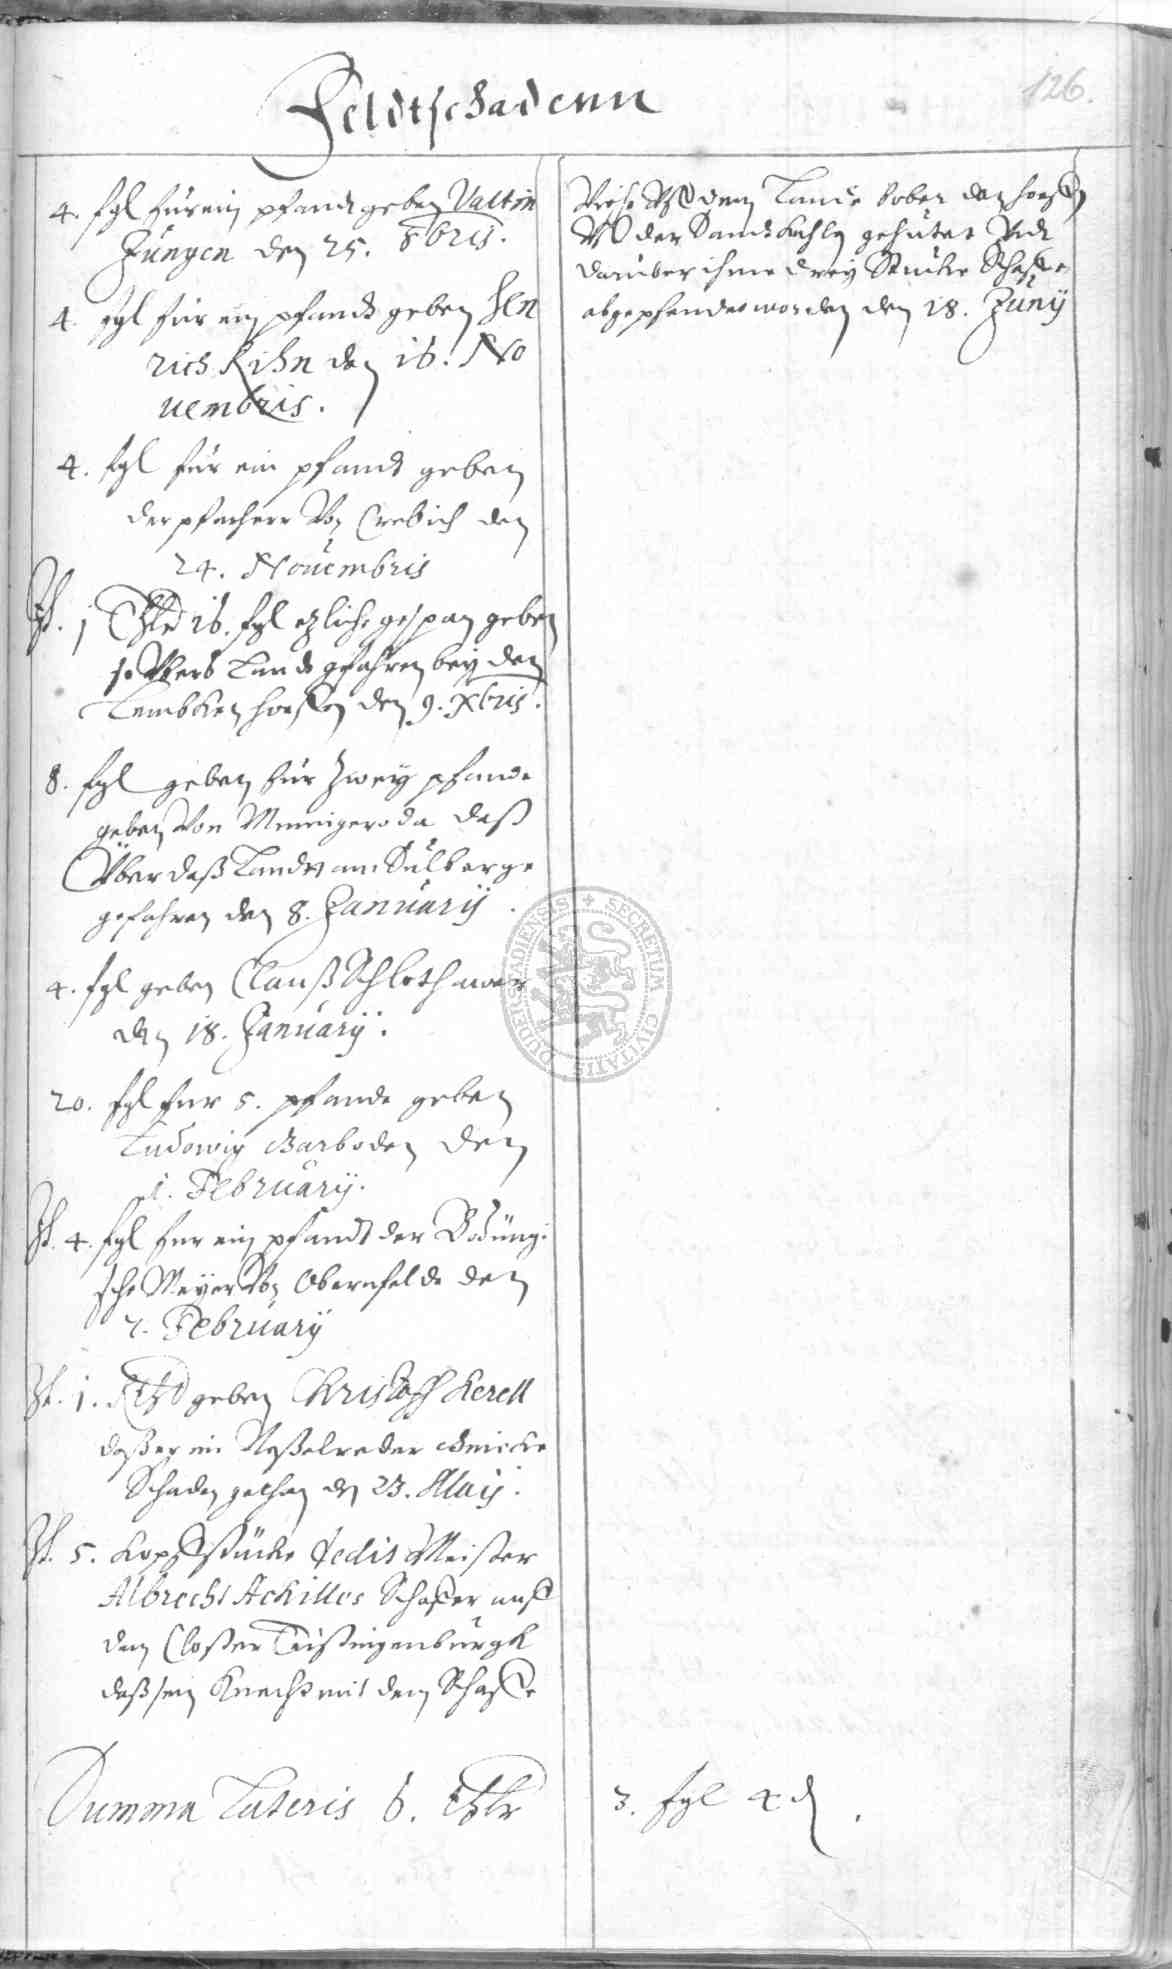 126.
Feldtschadenn
4. fgl für ein pfandt geben Valtin
Jüngen den 25. 8bris.
4. fgl für ein pfandt geben Hen
rich Kihn den 16. No
uembris.
4. fgl für ein pfandt geben
der pfarherr Von Crebich den
24. Nouembris
It. 1 Thlr 16. fgl etzliche gespan geben
so Vbers Landt gefahren bey den
den 9. Xbris.
8. fgl geben für Zwey pfande
geben Von Minnigeroda daß
Vber daß Landt am Sulberge
gefahren den 8. January.
4. fgl geben Clauß Schlothauer
den 18. January.
20. fgl fur 5. pfande geben
Ludowig Barboden den
1. February.
It. 4. fgl fur ein pfandt der Bodüng-
sche Meyer Von Obernfelde den
7. February
It. 1. geben Christoff Kerell
daß er im Neßelreder
Schaden gethan den 23. Maij.
It. 5. Kopffstücke dedit Meister
Albrecht Achilles Schaffer auff
dem Closter Teistingenburgk
daß sein Knecht mit dem Schaffe
Viehe Vff dem Lande bober den
Vff der gehütet Vndt
daruber ihme drey Stucke Schaffe
abgepfendet worden den 18. Juny
Summa Lateris 6. Thlr 3. fgl 4 d.
SECRETUM CIVITATIS DUDERSTADIENSIS